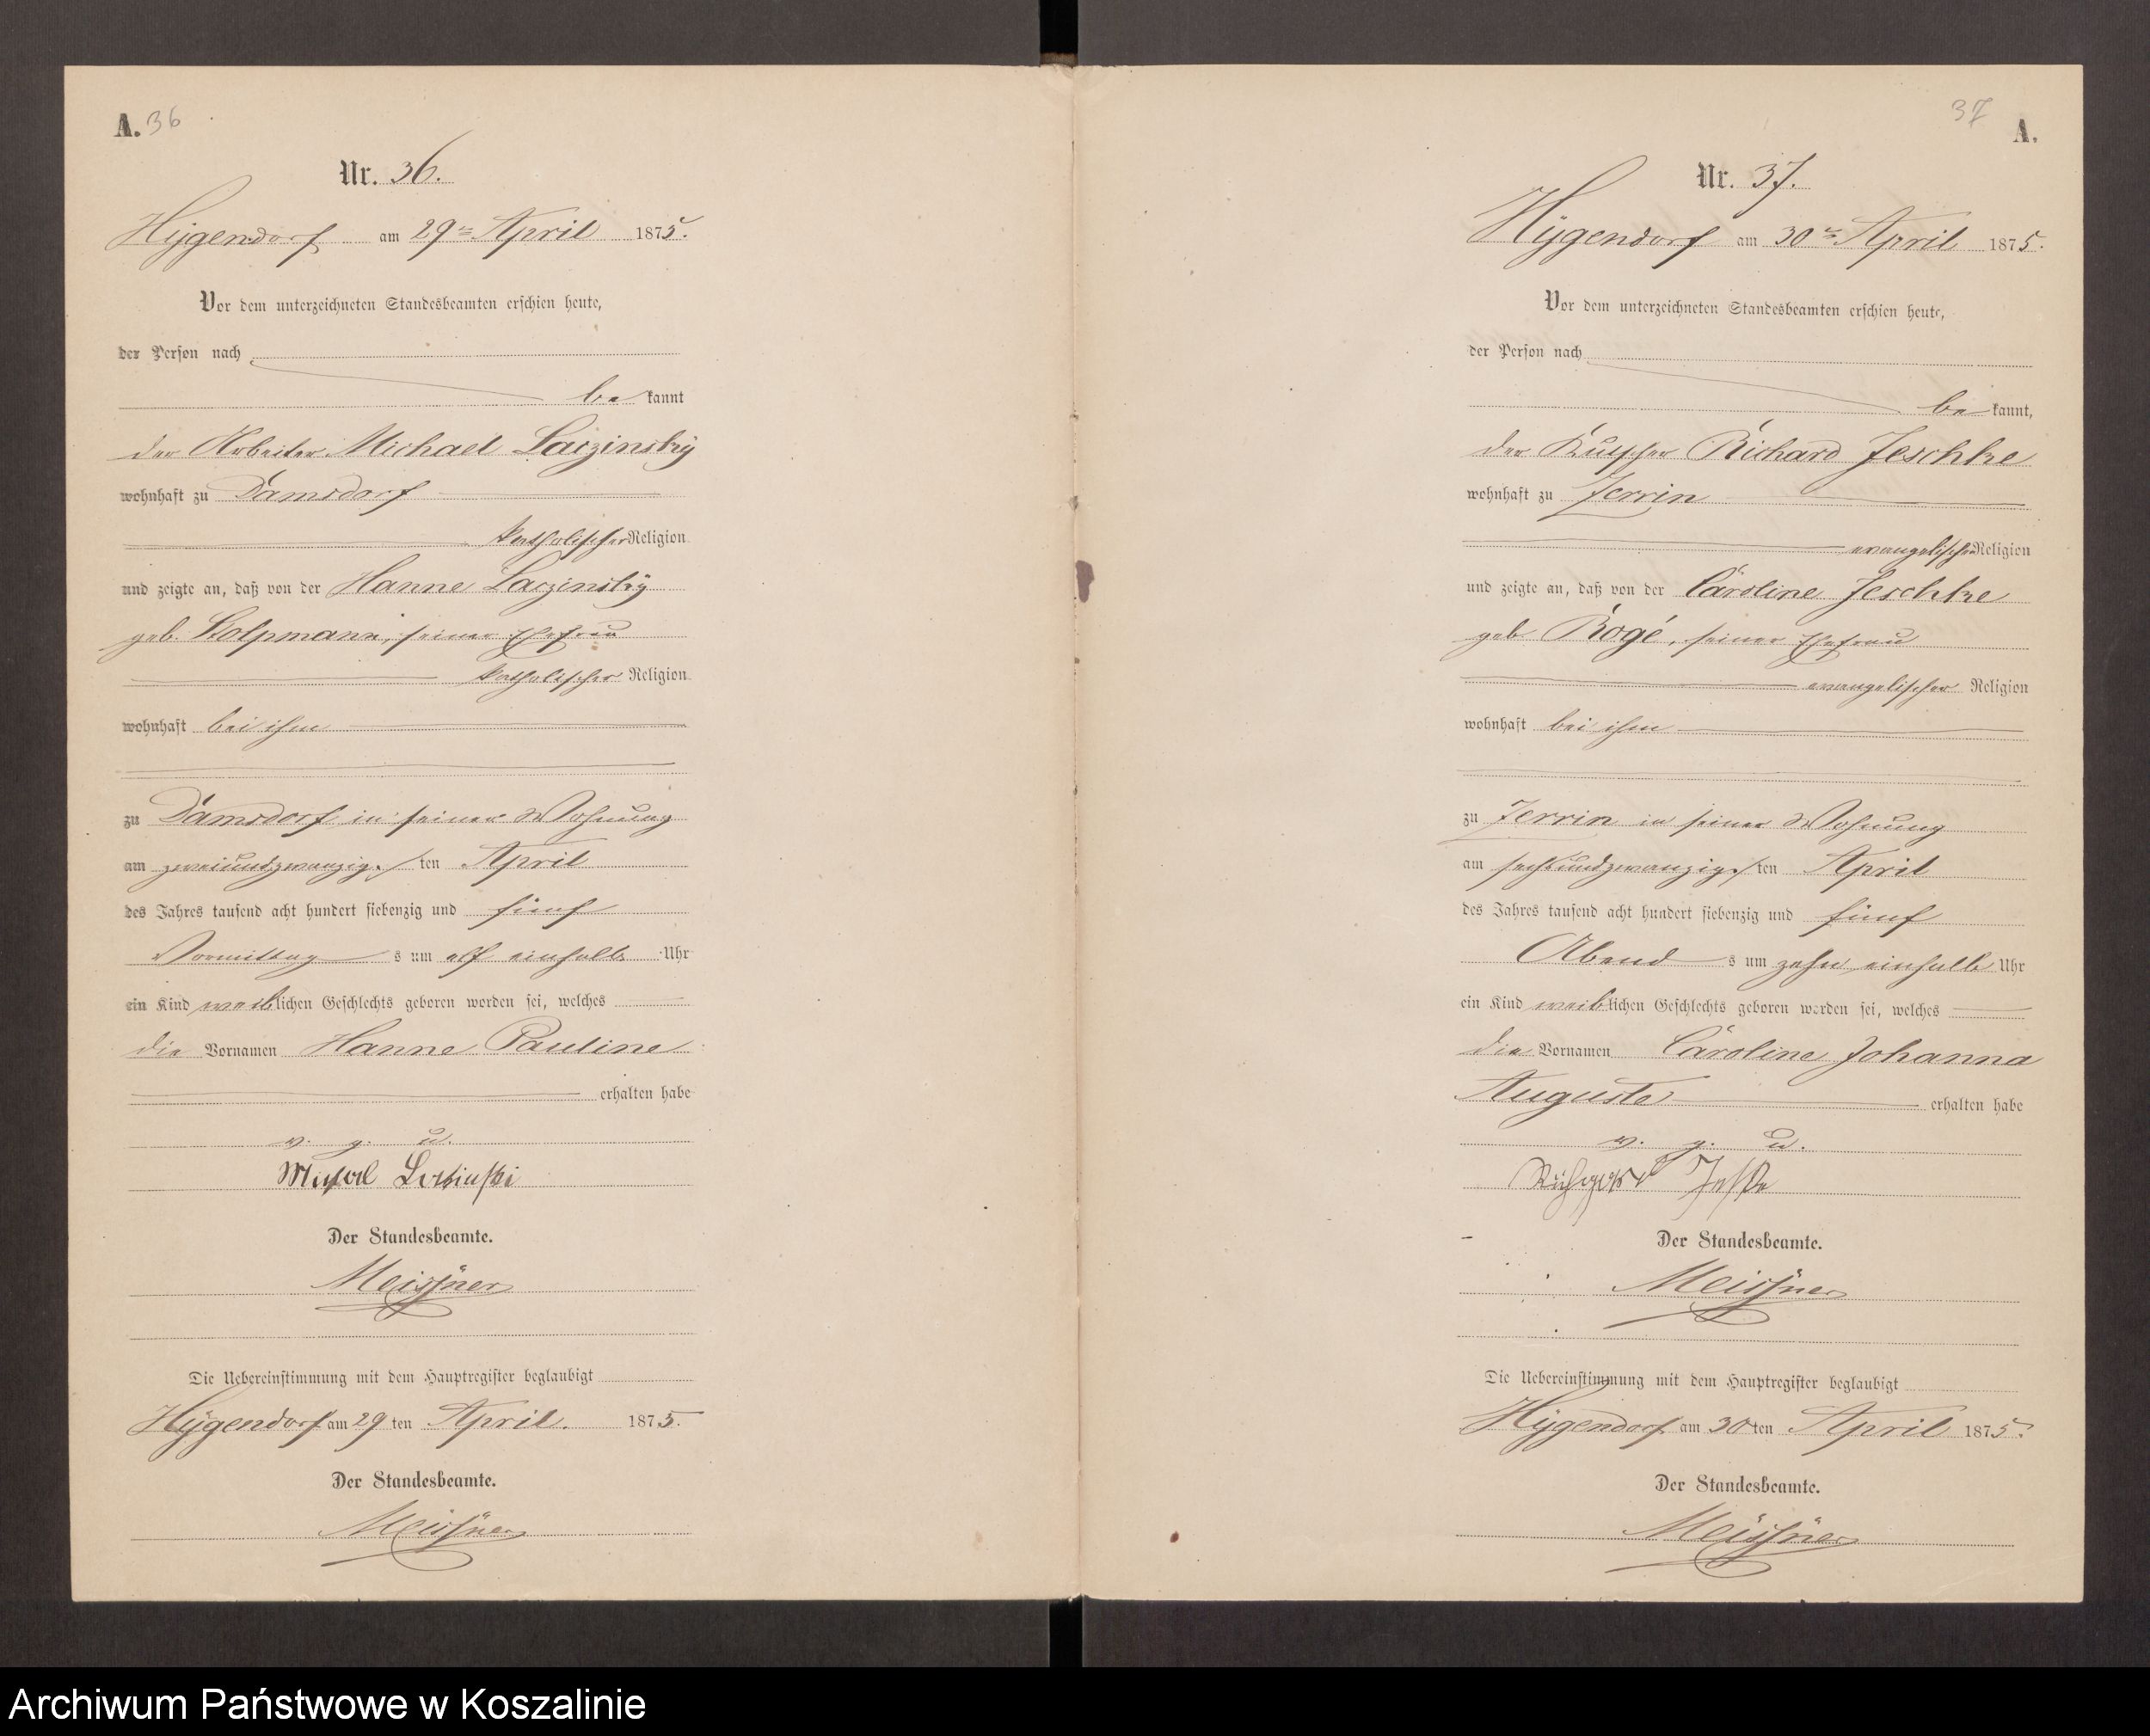 A. 36
Nr. 36.
Hygendorf am 29ten April 1875.
Vor dem unterzeichneten Standesbeamten erschien heute,
der Person nach
be kannt
der Arbeiter Michael Laczinsky
wohnhaft zu Damsdorf
katholischer Religion
und zeigte an, daß von der Hanne Laczinsky
geb. Kolpmann, seiner Ehefrau
katholischer Religion
wohnhaft bei ihm
zu Damsdorf in seiner Wohnung
am zweiundzwanzigs ten April
des Jahres tausend acht hundert siebenzig und fünf
Vormittag s um elf einhalb Uhr
ein Kind weib lichen Geschlechts geboren worden sei, welches
die Vornamen Hanne Pauline
erhalten habe
v. g. u.
Der Standesbeamte.
Meissner
Die Uebereinstimmung mit dem Hauptregister beglaubigt
Hygendorf am 29 ten April. 1875.
Der Standesbeamte.
Meissner
37 A.
Nr. 37.
Hygendorf am 30ten April 1875.
Vor dem unterzeichneten Standesbeamten erschien heute,
der Person nach
be kannt,
der Kutscher Richard Jeschke
wohnhaft zu Jerrin
evangelischer Religion
und zeigte an, daß von der Caroline Jeschke
geb. Rogé, seiner Ehefrau
evangelischer Religion
wohnhaft bei ihm
zu Jerrin in seiner Wohnung
am sechsundzwanzigs ten April
des Jahres tausend acht hundert siebenzig und fünf
Abend s um zehn einhalb Uhr
ein Kind weib lichen Geschlechts geboren worden sei, welches
die Vornamen Caroline Johanna
Auguste erhalten habe
v. g. u.
Der Standesbeamte.
Meissner
Die Uebereinstimmung mit dem Hauptregister beglaubigt
Hygendorf am 30 ten April 1875.
Der Standesbeamte.
Meissner
Archiwum Państwowe w Koszalinie